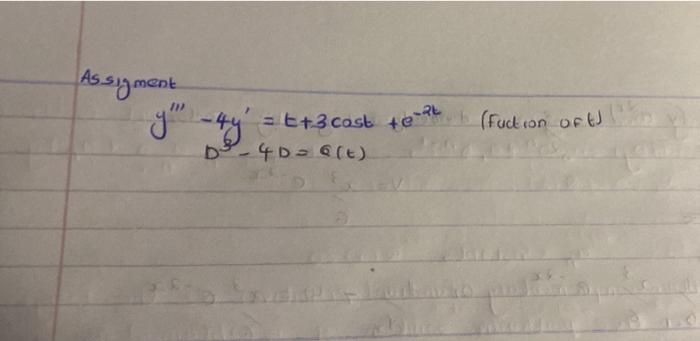 Assigment
y''' - 4y' = t + 3 cost + e^-2t (Fuction of t)
D^3 - 4D = Q(t)